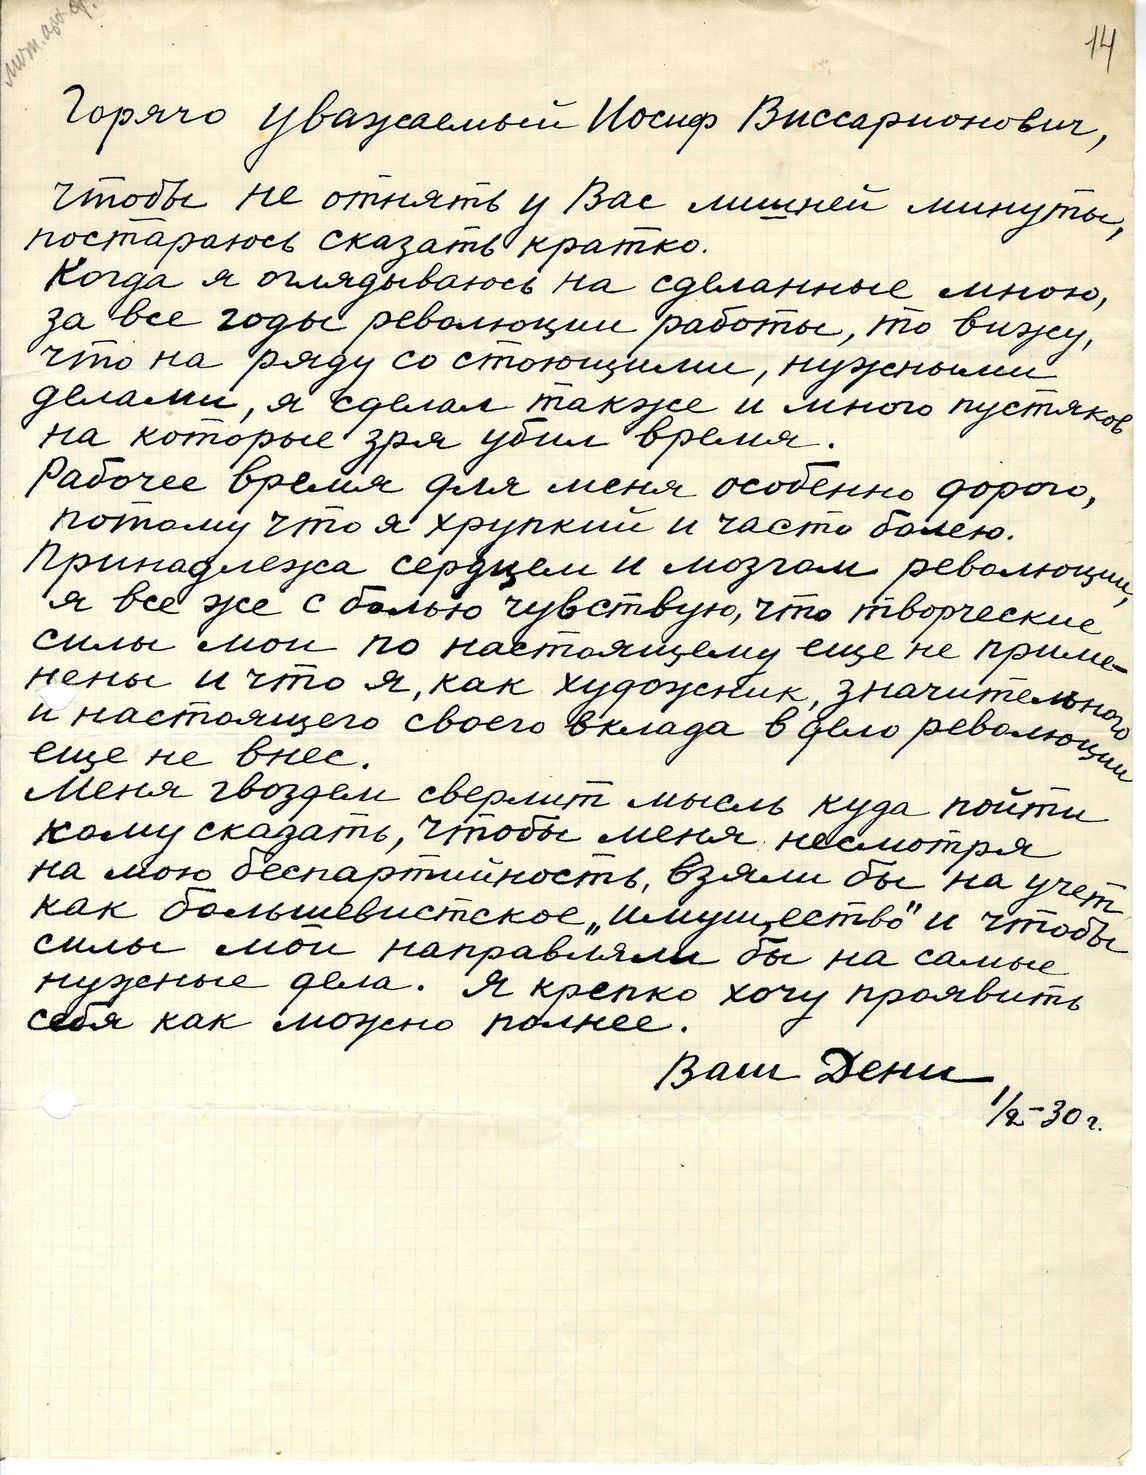 14
Горячо уважаемый Иосиф Виссарионович,
чтобы не отнять у Вас лишней минуты,
постараюсь сказать кратко.
Когда я оглядываюсь на сделанные мною,
за все годы революции работы, то вижу,
что на ряду со стоющими, нужными
делами, я сделал также и много пустяков
на которые зря убил время.
Рабочее время для меня особенно дорого,
потому что я хрупкий и часто болею.
Принадлежа сердцем и мозгом революции,
я все же с болью чувствую, что творческие
силы мои по настоящему еще не приме-
нены и что я, как художник, значительного
и настоящего своего вклада в дело революции
еще не внес.
Меня гвоздем сверлит мысль куда пойти
кому сказать, чтобы меня несмотря
на мою беспартийность, взяли бы на учет
как большевистское „имущество" и чтобы
силы мои направляли бы на самые
нужные дела. Я крепко хочу проявить
себя как можно полнее.
Ваш Дени
1/2-30 г.